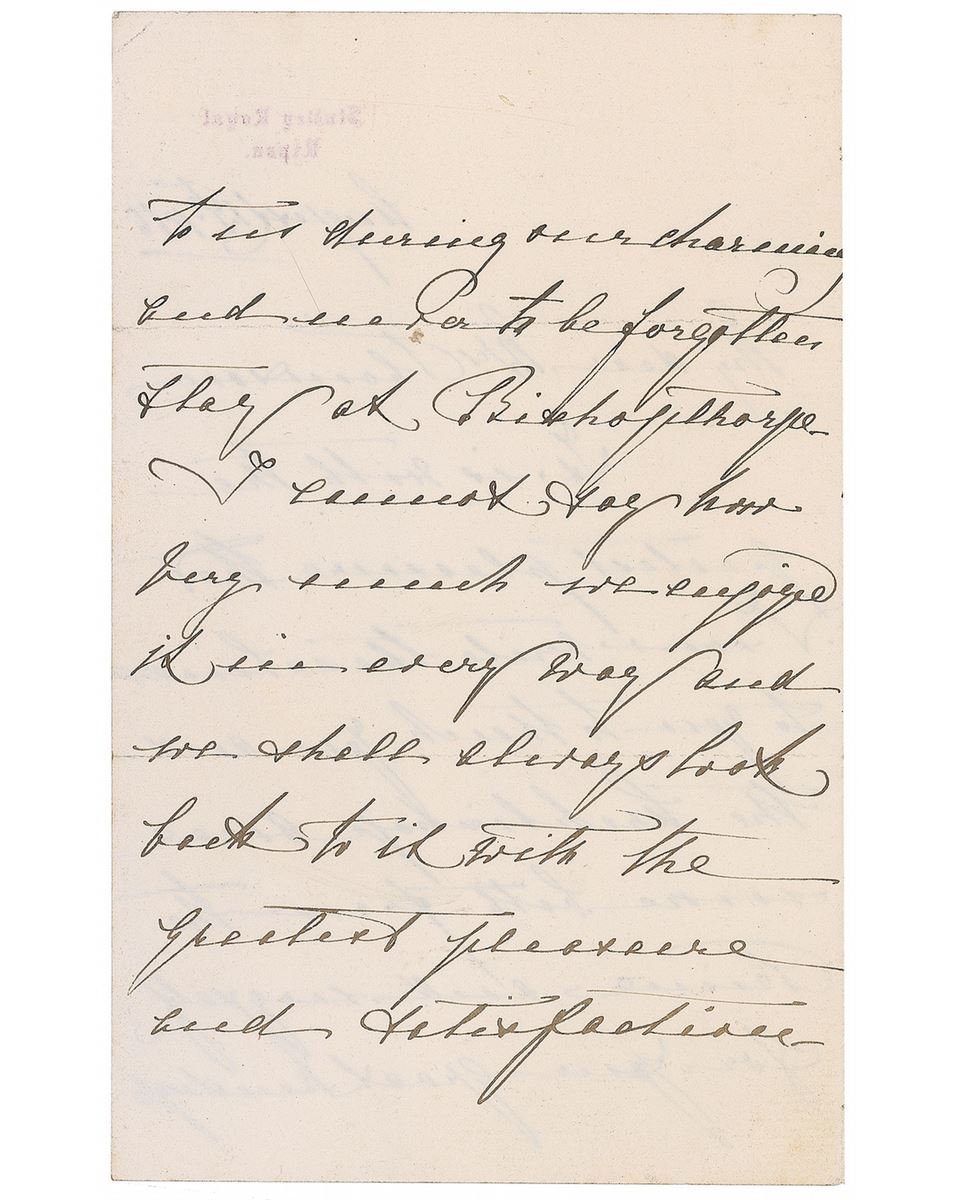 Studley Royal
Ripon.
to us during our charming
and never to be forgotten
stay at Bishopthorpe
I cannot say how
very much we enjoyed
it in every way and
we shall always look
back to it with the
greatest pleasure
and satisfaction